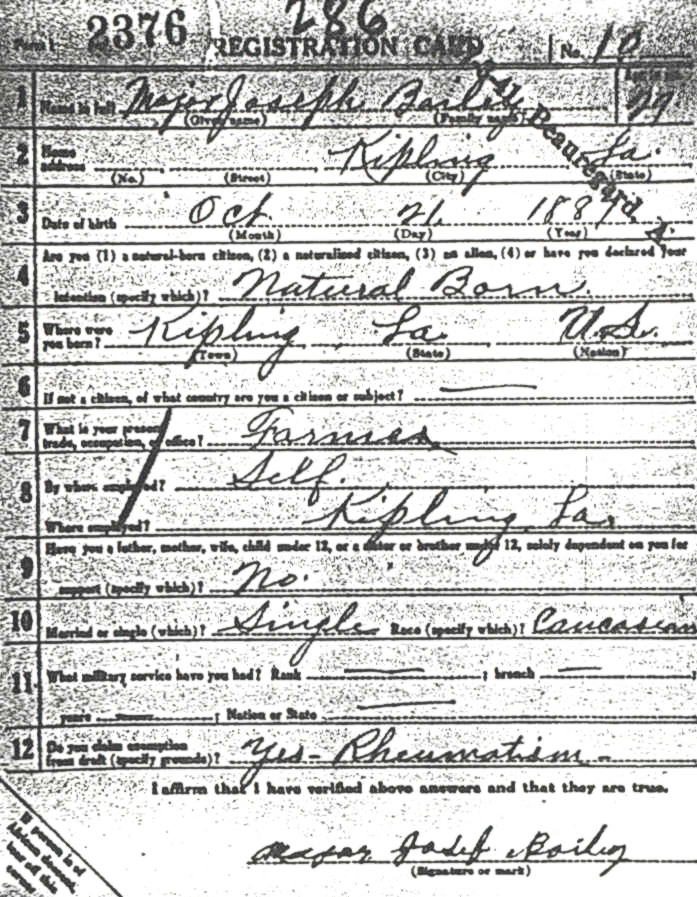 286
Form 1 2376 REGISTRATION CARD No. 10
1 Name in full Major Joseph Bailey 29
(Given name) (Family name)
Beauregard
2 Home address Kipling La.
(No.) (Street) (City) (State)
3 Date of birth Oct 21 1887
(Month) (Day) (Year)
Are you (1) a natural-born citizen, (2) a naturalized citizen, (3) an alien, (4) or have you declared your
4 intention (specify which)? Natural Born.
5 Where were you born? Kipling, La. U.S.
(Town) (State) (Nation)
6 If not a citizen, of what country are you a citizen or subject? —
7 What is your present trade, occupation, or office? Farmer
8 By whom employed? Self.
Where employed? Kipling, La.
Have you a father, mother, wife, child under 12, or a sister or brother under 12, solely dependent on you for
9 support (specify which)? No.
10 Married or single (which)? Single Race (specify which)? Caucasian
11 What military service have you had? Rank — ; branch — ;
years — ; Nation or State —
12 Do you claim exemption from draft (specify grounds)? Yes - Rheumatism -
I affirm that I have verified above answers and that they are true.
Major Josef Bailey
(Signature or mark)
If person is of
African descent,
tear off this
corner